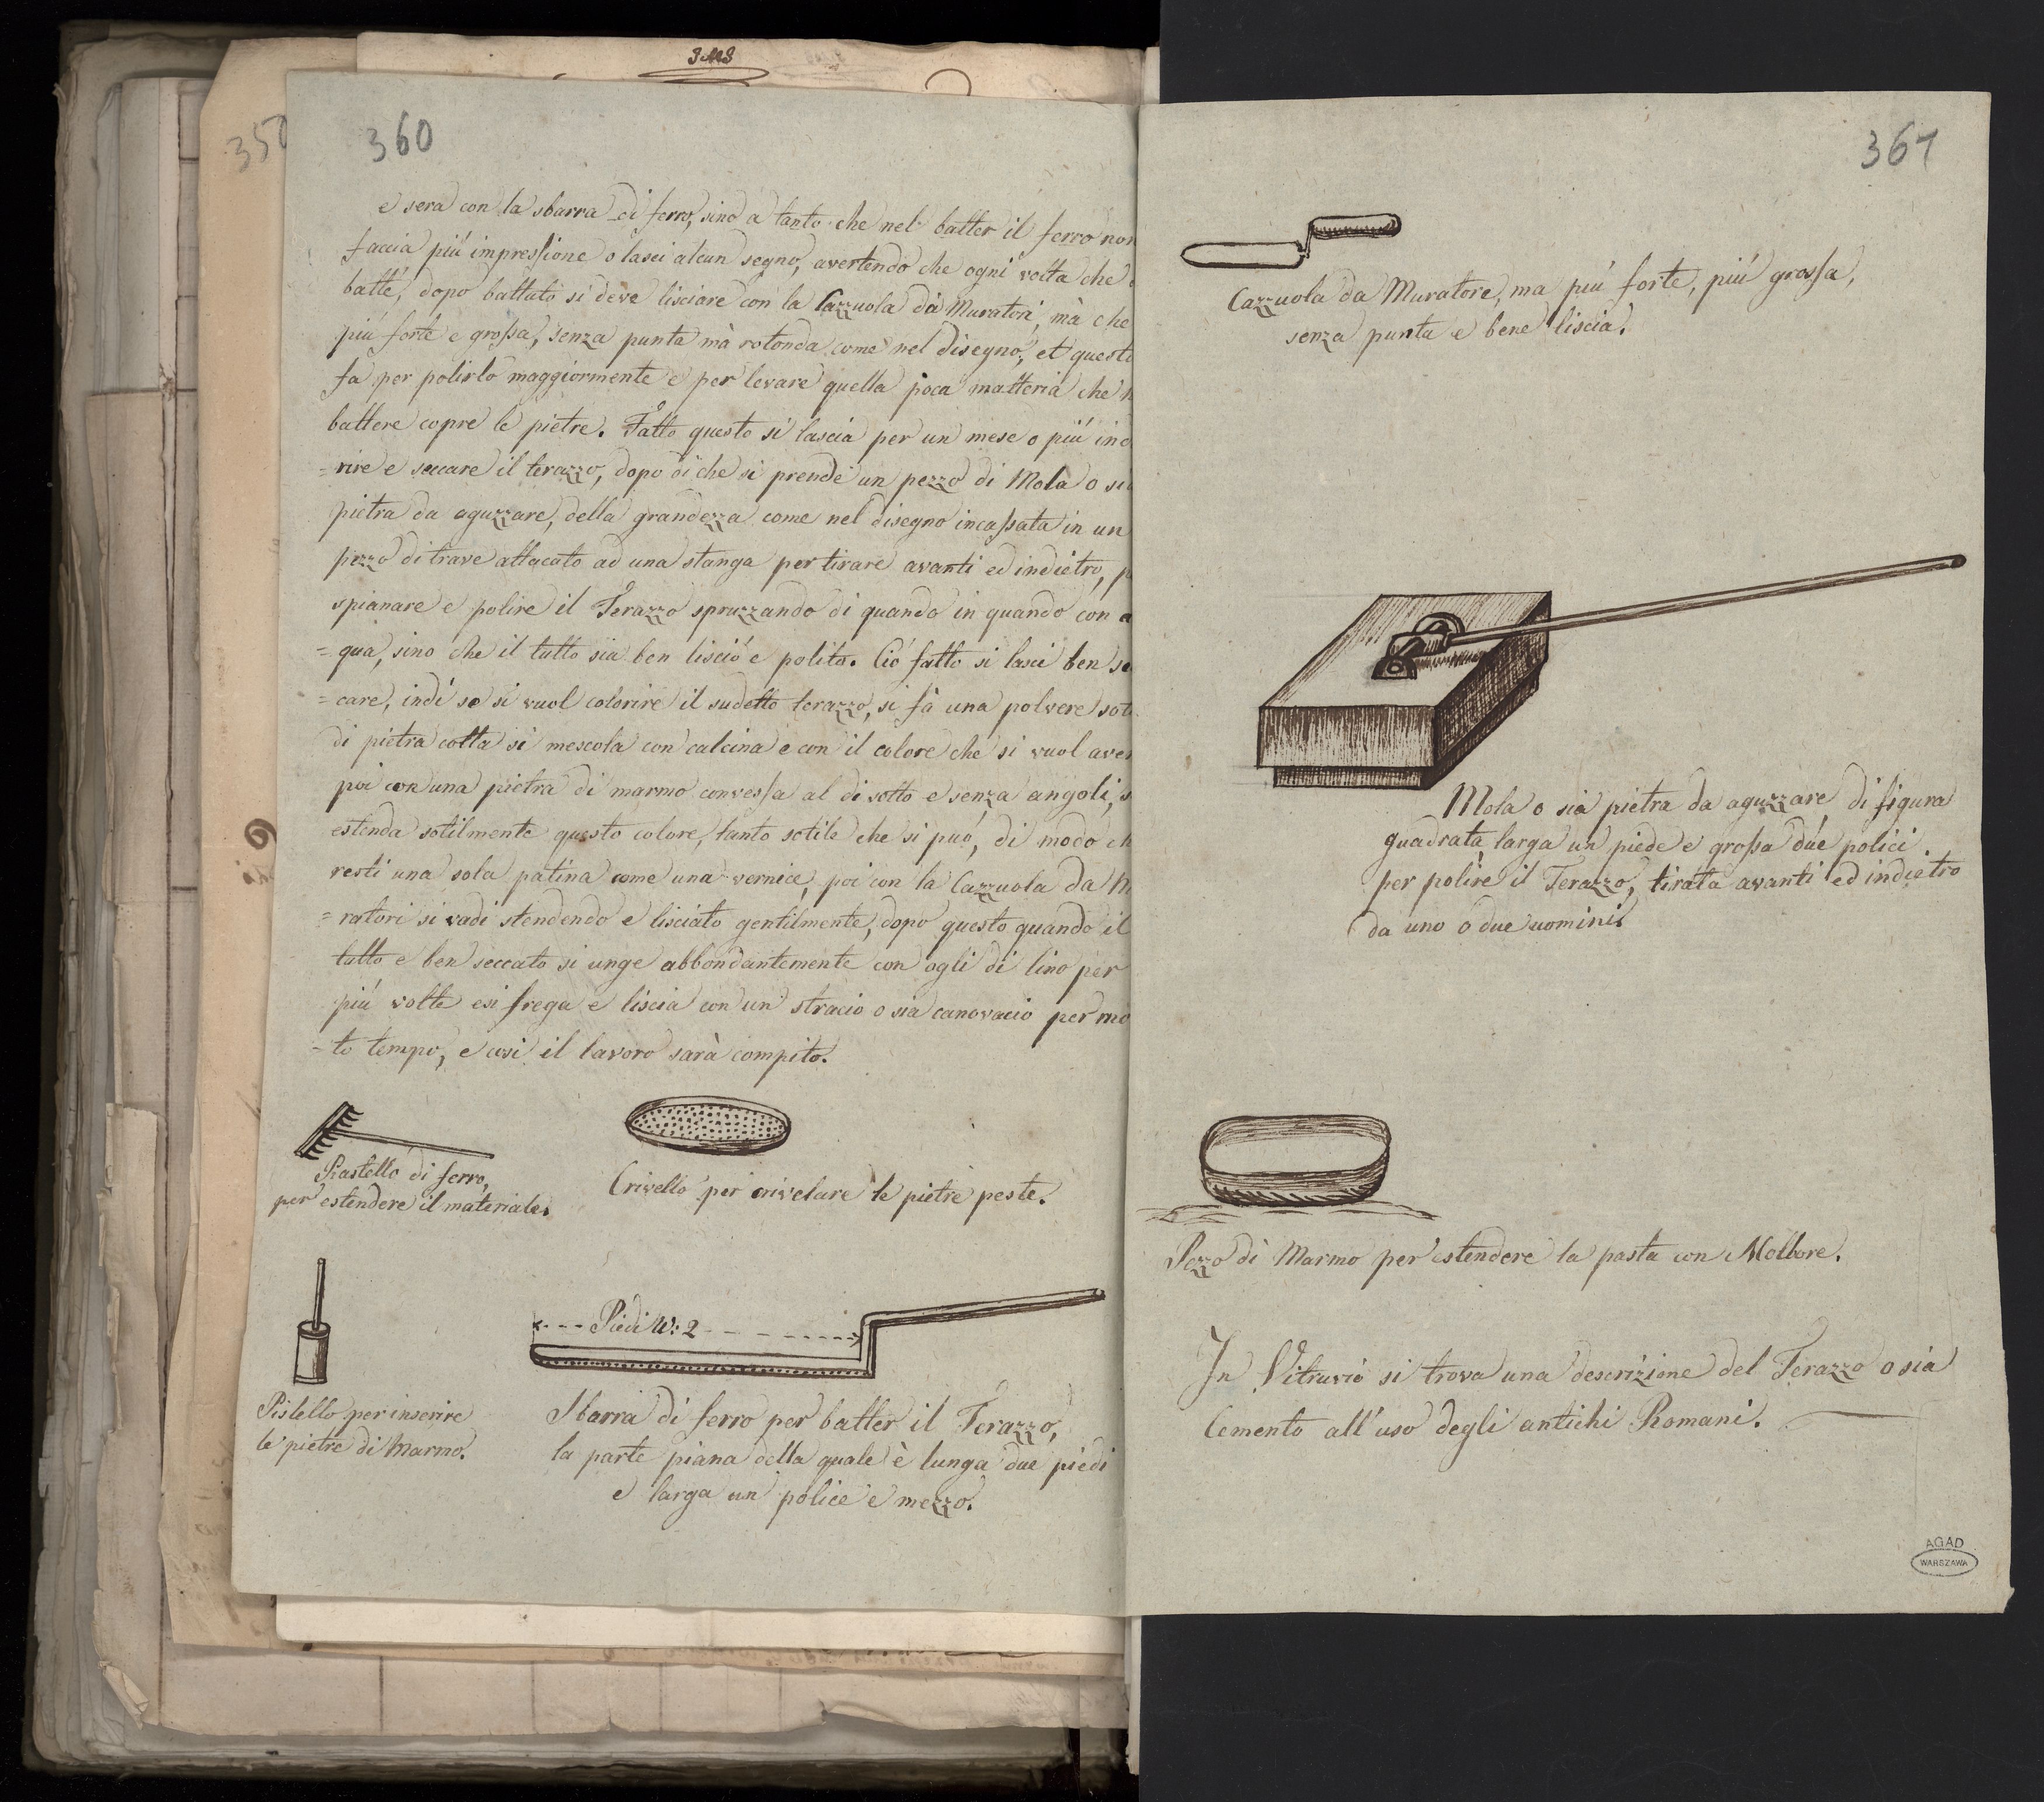 360
e sera con la sbarra di ferro, sino a tanto che nel batter il ferro non
faccia più impressione o lasci alcun segno, avertendo che ogni volta che
batte, dopo battuto si deve lisciare con la Cazzuola dà Muratori, mà che
più forte e grossa, senza punta mà rotonda come nel disegno, et questo
fa per polirlo maggiormente e per levare quella poca matteria che
battere copre le pietre. Fatto questo si lascia per un mese o più ind
=rire e seccare il terazzo, dopo di che si prende un pezzo di Mola o si
pietra da aguzzare, della grandezza come nel disegno incassata in un
pezzo di trave attacato ad una stanga per tirare avanti ed indietro, p
spianare e polire il Terazzo spruzzando di quando in quando con a
=qua, sino che il tutto sia ben liscio e polito. Ciò fatto si lasci ben se
=care, indi se si vuol colorire il sudetto terazzo, si fà una polvere soti
di pietra cotta si mescola con calcina e con il colore che si vuol aver
poi con una pietra di marmo convessa al di sotto e senza angoli, s
estenda sotilmente questo colore, tanto sotile che si può, di modo ch
resti una sola patina come una vernice, poi con la Cazzuola da M
=ratori si vadi stendendo e lisciato gentilmente, dopo questo quando il
tutto e ben seccato si unge abbondantemente con ogli di lino per
più volte e si frega e liscia con un stracio o sia canovacio per mo
=to tempo, e cosi il lavoro sarà compito.
Rastello di ferro,
per estendere il materiale.
Crivello per crivelare le pietre peste.
Piedi N: 2
Pistello per inserire
le pietre di Marmo.
Sbarra di ferro per batter il Terazzo,
la parte piana della quale è lunga due piedi
e larga un police e mezzo.
361
Cazzuola da Muratore, ma più forte, più grossa,
senza punta e bene liscia.
Mola o sia pietra da aguzzare di figura
quadrata larga un piede e grossa due polici
per polire il Terazzo, tirata avanti ed indietro
da uno o due uomini.
Pezzo di Marmo per estendere la pasta con
In Vitruvio si trova una descrizione del Terazzo o sia
Cemento all'uso degli antichi Romani.
AGAD
WARSZAWA